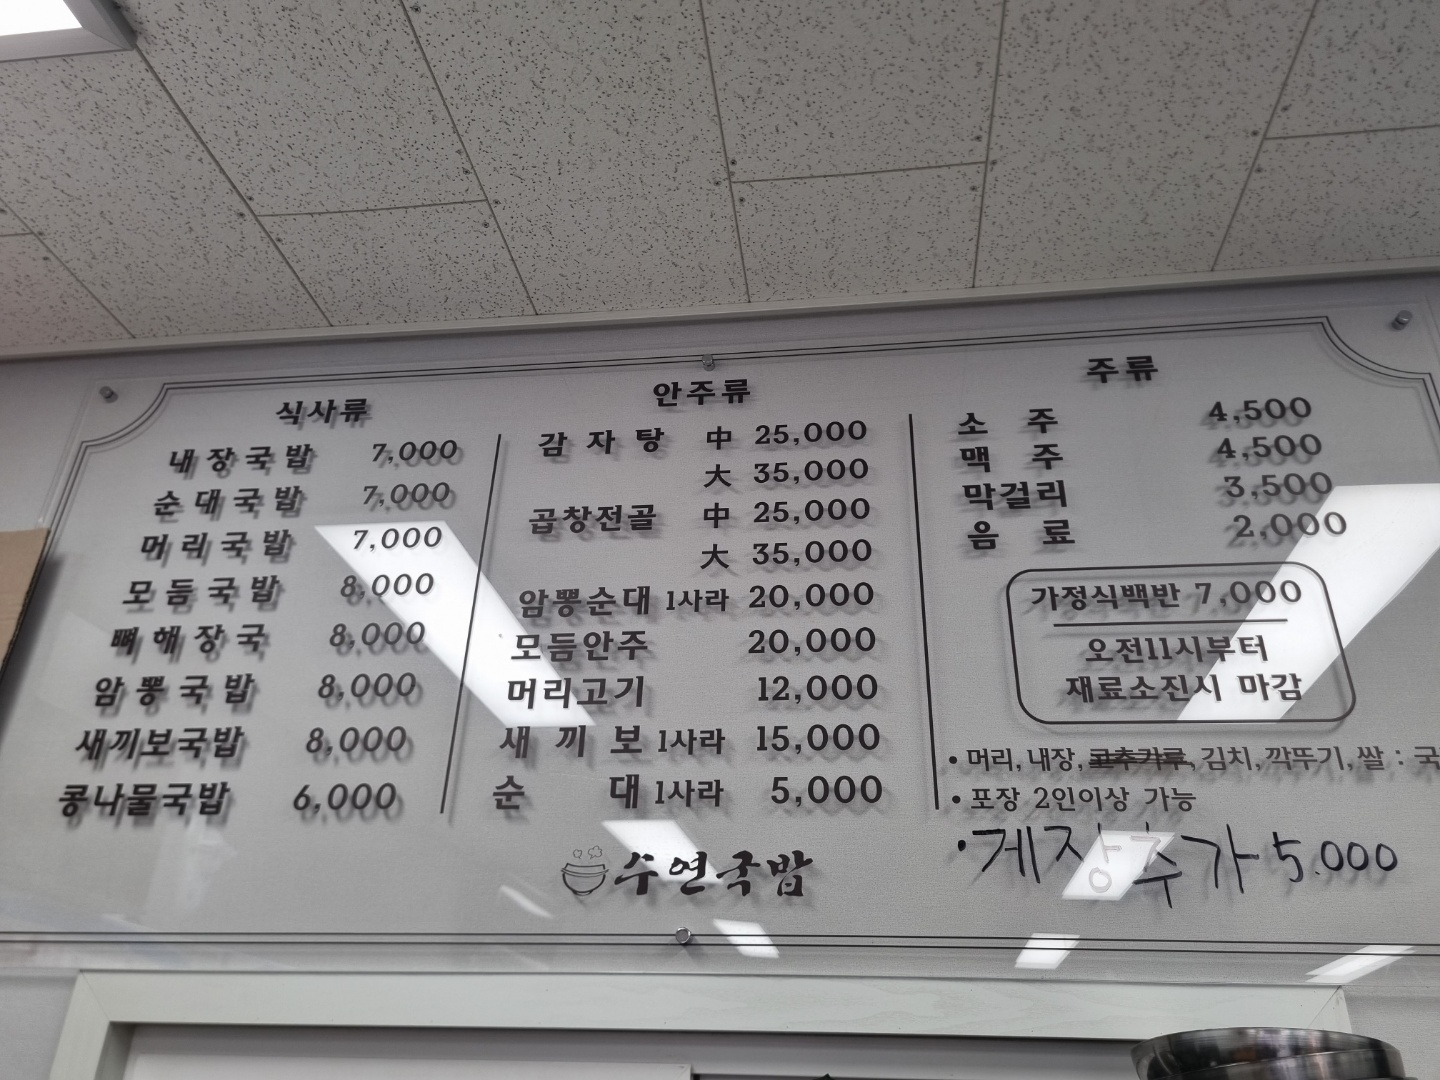 식사류
내장국밥 7,000
순대국밥 7,000
머리국밥 7,000
모듬국밥 8,000
뼈해장국 8,000
암뽕국밥 8,000
새끼보국밥 8,000
콩나물국밥 6,000
안주류
감자탕 中 25,000
大 35,000
곱창전골 中 25,000
大 35,000
암뽕순대 1사라 20,000
모듬안주 20,000
머리고기 12,000
새끼보 1사라 15,000
순대 1사라 5,000
수연국밥
주류
소주 4,500
맥주 4,500
막걸리 3,500
음료 2,000
가정식백반 7,000
오전11시부터
재료소진시 마감
• 머리, 내장, 고추가루, 김치, 깍뚜기, 쌀 : 국
• 포장 2인이상 가능
• 게장추가 5.000